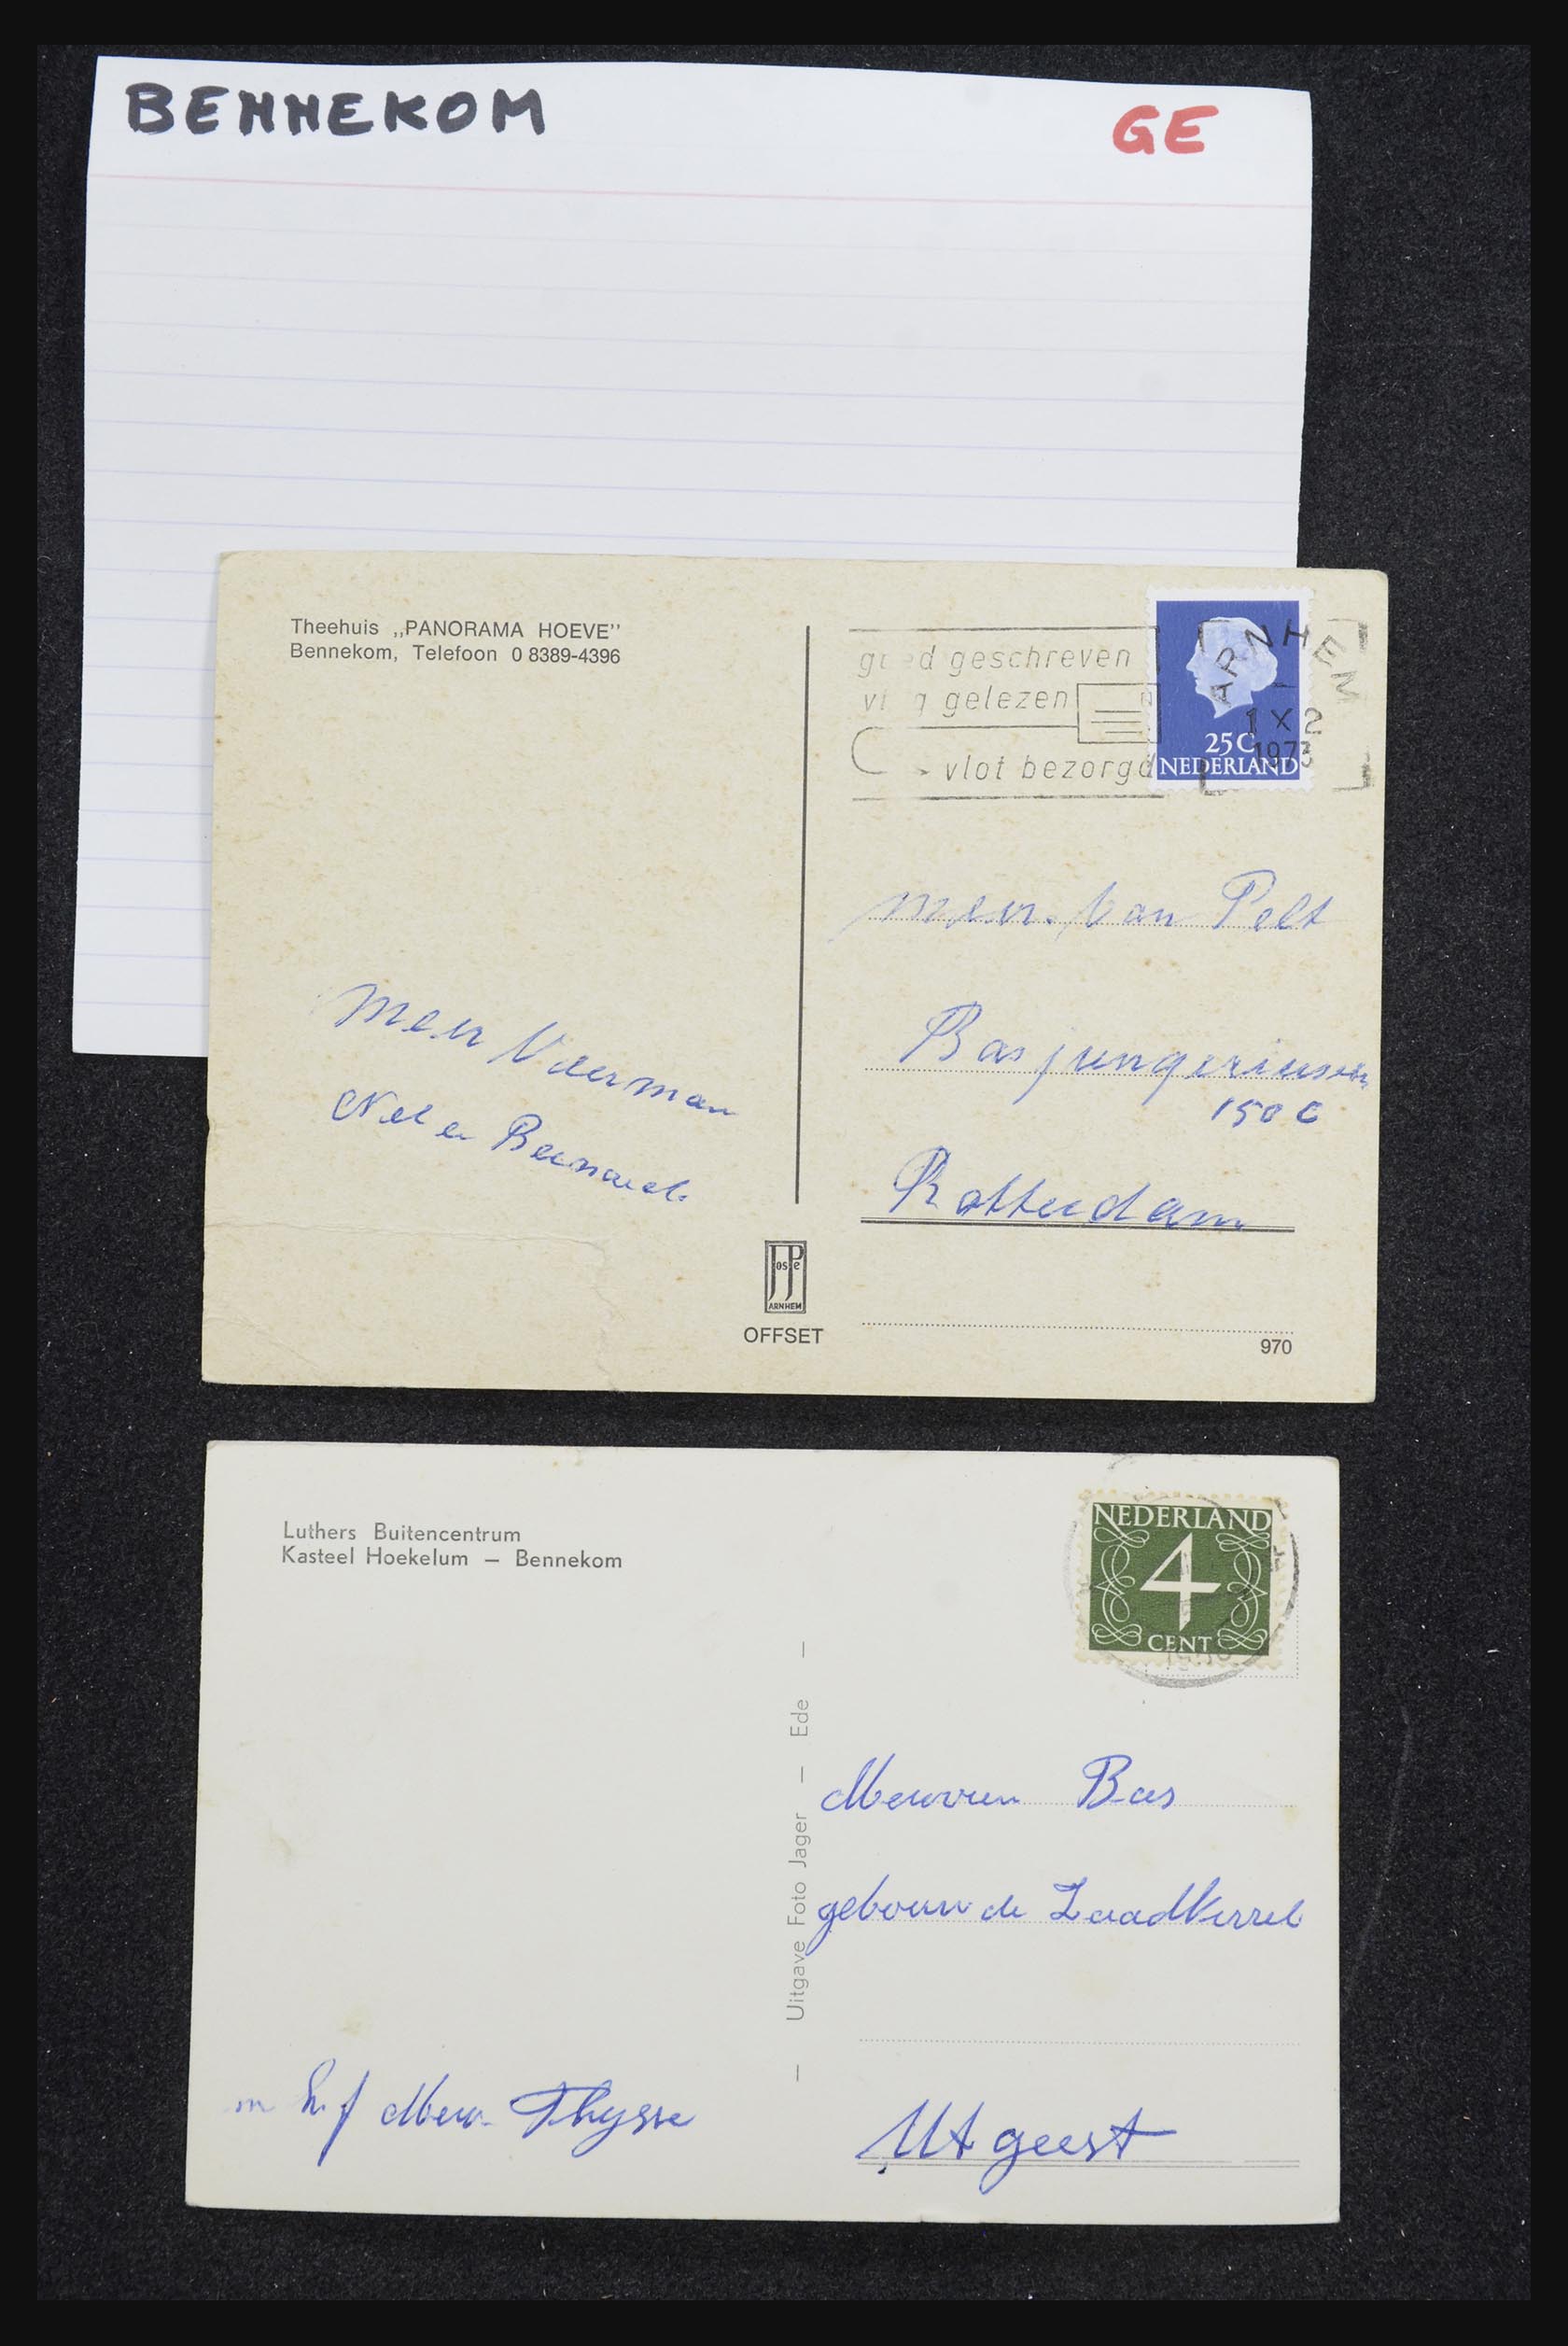 BENNEKOM
GE
Theehuis „PANORAMA HOEVE”
Bennekom, Telefoon 0 8389-4396
geschreven
gelezen
vlot bezorgd
ARNHEM
1 X 2
1973
25C
NEDERLAND
meur. Van Pelt
Basjungeriusen
150 C
Rotterdam
meur
Nel en
JosPe
ARNHEM
OFFSET
970
Luthers Buitencentrum
Kasteel Hoekelum – Bennekom
NEDERLAND
4
CENT
– Uitgave Foto Jager – Ede –
Mevrouw Bas
gebouw de Zaadkorrel
Uitgeest
Mevr. Thysse